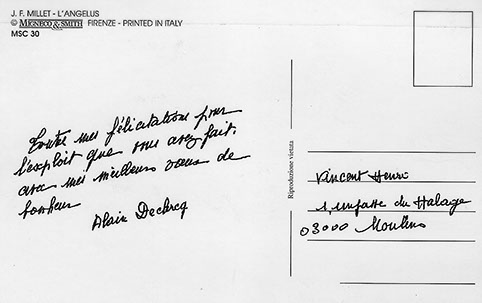 J. F. MILLET - L'ANGELUS
© MIGNECO & SMITH FIRENZE - PRINTED IN ITALY
MSC 30
Toutes mes félicitations pour
l'exploit que vous avez fait.
avec mes meilleurs vœux de
bonheur
Alain Declercq
Riproduzione vietata
Vincent Henri
1, impasse du Halage
03000 Moulins